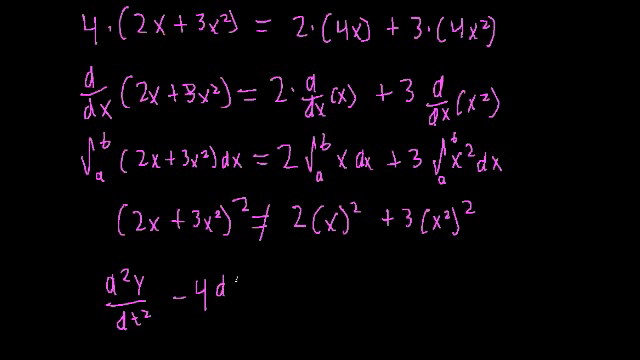 4·(2x+3x²) = 2·(4x) + 3·(4x²)
d/dx (2x+3x²) = 2·d/dx (x) + 3 d/dx (x²)
∫ₐᵇ (2x+3x²)dx = 2∫ₐᵇ x dx + 3∫ₐᵇ x² dx
(2x+3x²)² ≠ 2(x)² + 3(x²)²
d²y/dt² - 4d